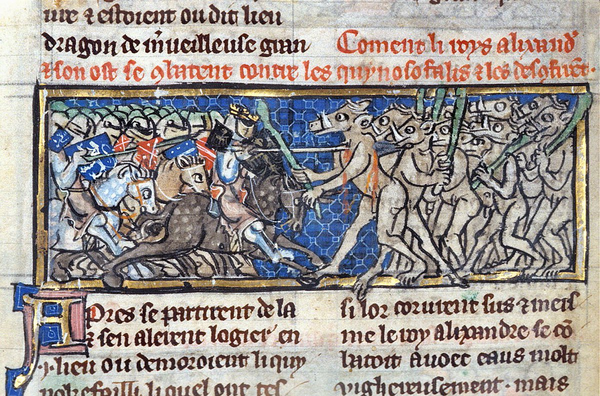 ure & estoient ou dit lieu
dragon de m̄ueilleuse gran
Coment li roys alixand
& son ost se ꝯbatent contre les quynosofalis & les
Apres se partirent de la
& sen alerent logier en
.i. lieu ou demoroient li quy
liquel ont tes
si lor corurent sus & meis
me le roy alixandre se cō
batoit auoec eaus molt
vighereusement. mais